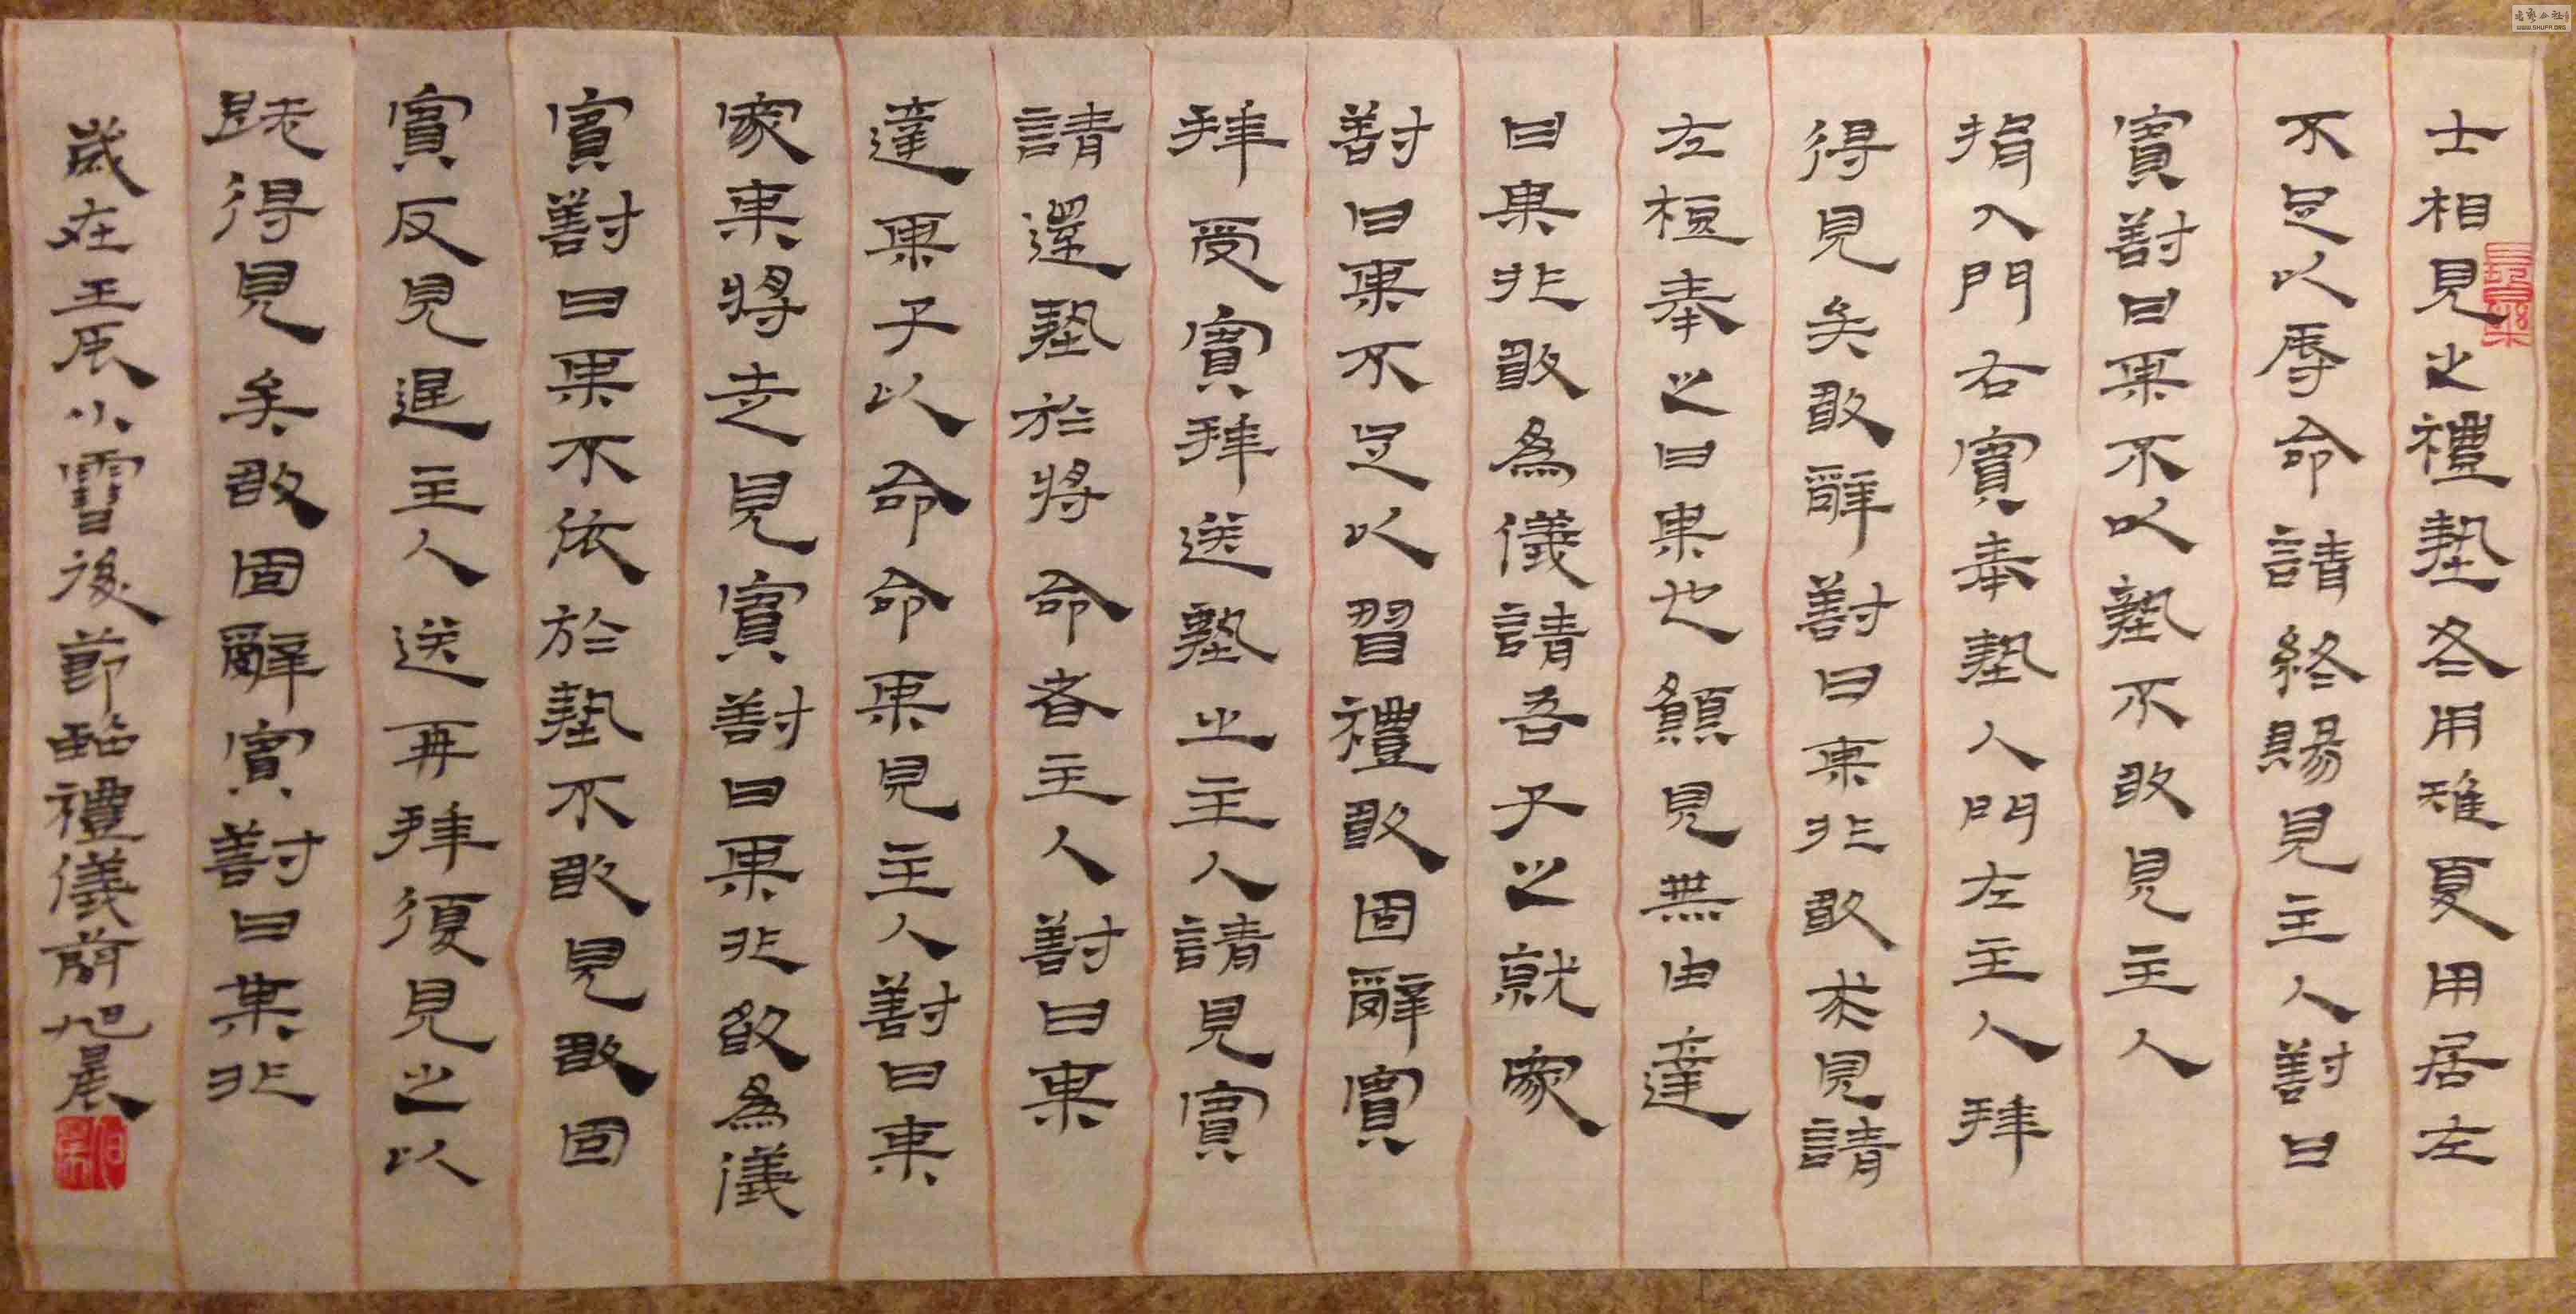 士相見之禮墊冬用雉夏用居左
不足以辱命請終賜見主人對曰
賓對曰某不以墊不敢見主人
揖入門右賓奉墊入門左主人拜
得見矣敢辭對曰某非敢求見請
左梪奉之曰某也願見無由達
曰某非敢為儀請吾子之就家
對曰某不足以習禮敢固辭賓
拜受賓拜送墊出主人請見賓
請還墊於將命者主人對曰某
達某子以命命某見主人對曰某
家某將走見賓對曰某非敢為儀
賓對曰某不依於墊不敢見敢固
賓反見退主人送再拜復見之以
既得見矣敢固辭賓對曰某非
歲在壬辰小雪後節臨禮儀簡旭晨
WWW.SHUFA.ORG